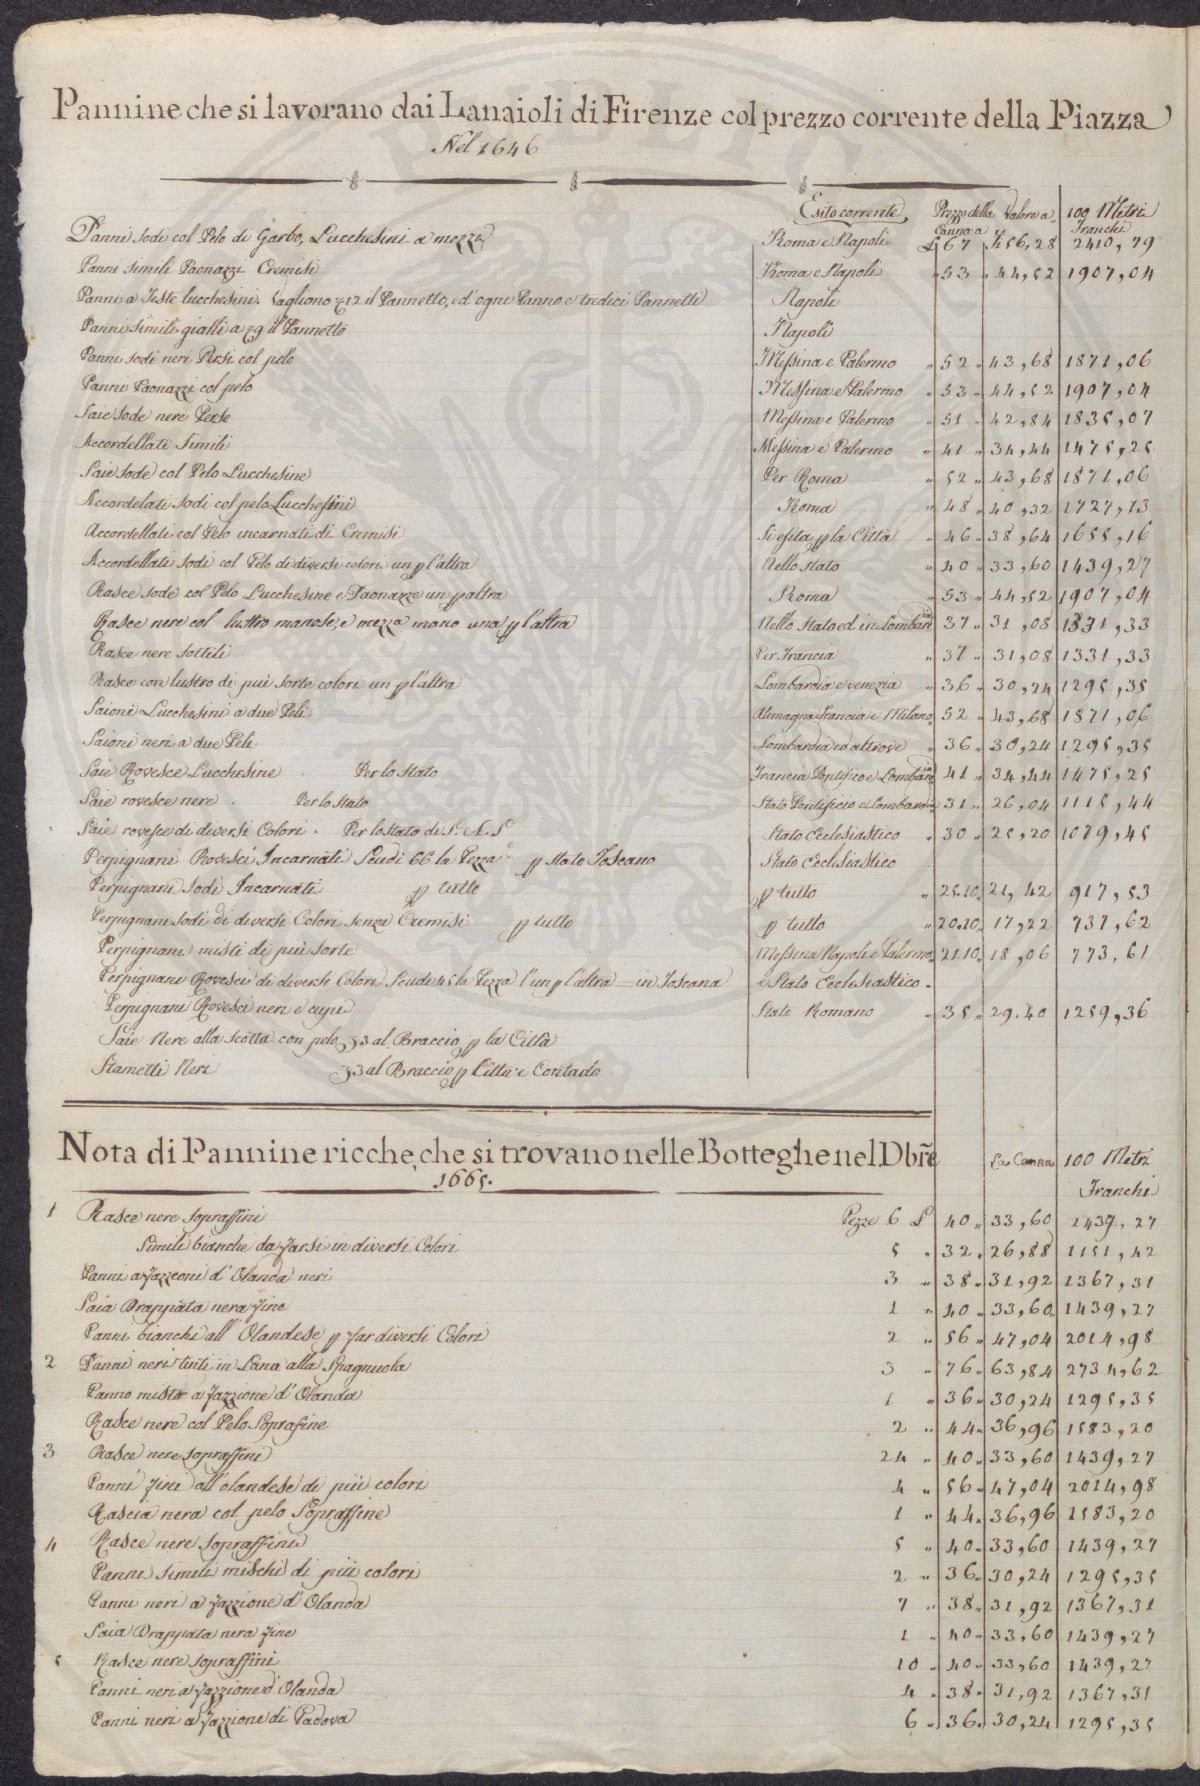 Pannine che si lavorano dai Lanaioli di Firenze col prezzo corrente della Piazza
Nel 1646
Esito corrente Prezzo della Canna a Valore a 100 Metri Franchi
Panni sodi col Pelo di Garbo, Lucchesini a mezzi Roma e Napoli £ 67 56,28 2410,79
Panni simili Paonazzi Cremisi Roma e Napoli " 53 " 44,52 1907,04
Panni a Teste lucchesini. Vagliono 12 il Pannetto, ed ogni Panno e tredici Pannetti Napoli
Panni simili gialli a 9 il Pannetto Napoli
Panni sodi neri Persi col pelo Messina e Palermo " 52 " 43,68 1871,06
Panni Paonazzi col pelo Messina e Palermo " 53 " 44,52 1907,04
Saie sode nere Perse Messina e Palermo " 51 " 42,84 1835,07
Accordellati Simili Messina e Palermo " 41 " 34,44 1475,25
Saie sode col Pelo Lucchesine Per Roma " 52 " 43,68 1871,06
Accordelati sodi col pelo Lucchesini Roma " 48 " 40,32 1727,13
Accordellati col Pelo incarnati di Cremisi Si esita p la Città " 46 " 38,64 1655,16
Accordellati sodi col Pelo di diversi colori un p l'altra Nello stato " 40 " 33,60 1439,27
Rasce sode col Pelo Lucchesine e Paonazze un p altra Roma " 53 " 44,52 1907,04
Rasce nere col lustro manose, e mezza mano una p l'altra Nello Stato ed in Lombardia 37 " 31,08 1331,33
Rasce nere sottili Per Francia " 37 " 31,08 1331,33
Rasce con lustro di più sorte colori un p l'altra Lombardia e venezia " 36 " 30,24 1295,35
Saioni Lucchesini a due Peli Alemagna francia e Milano " 52 " 43,68 1871,06
Saioni neri a due Peli Lombardia ed altrove " 36 " 30,24 1295,35
Saie Rovesce Lucchesine . Per lo Stato Francia Pontificio e Lombardia 41 " 34,44 1475,25
Saie rovesce nere . Per lo stato Stato Pontificio e Lombardia 31 " 26,04 1115,44
Saie rovesce di diversi Colori . Per lo stato di S. A. S Stato Ecclesiastico " 30 " 25,20 1079,45
Perpignani Rovesci Incarnati Scudi 66 la Pezza p stato Toscano Stato Ecclesiastico
Perpignani Sodi Incarnati p tutto p tutto " 25.10 " 21,42 917,53
Perpignani sodi di diversi Colori senza Cremisi p tutto p tutto " 20.10 " 17,22 737,62
Perpignani misti di più sorte Messina Napoli e Palermo " 21.10 " 18,06 773,61
Perpignani Rovesci di diversi Colori Scudi 45 la Pezza l'un p l'altra = in Toscana e Stato Ecclesiastico .
Perpignani Rovesci neri e cupi Stato Romano " 35 " 29.40 1259,36
Saie Nere alla scotta con pelo 3 al Braccio p la Città
Stametti Neri 3 al Braccio p Citta e Contado
Nota di Pannine ricche, che si trovano nelle Botteghe nel Dbrẽ
1665.
La Canna 100 Metri
Franchi
1 Rasce nere sopraffini Pezze 6 £ 40 " 33,60 1439,27
Simili bianche da farsi in diversi Colori 5 " 32 " 26,88 1151,42
Panni a fazzioni d'Olanda neri 3 " 38 " 31,92 1367,31
Saia Drappata nera fine 1 " 40 " 33,60 1439,27
Panni bianchi all'Olandese p far diversi Colori 2 " 56 " 47,04 2014,98
2 Panni neri tinti in Lana alla Spagnuola 3 " 76 " 63,84 2734,62
Panno misto a fazzione d'Olanda 1 " 36 " 30,24 1295,35
Rasce nere col Pelo Soprafine 2 " 44 " 36,96 1583,20
3 Rasce nere sopraffini 24 " 40 " 33,60 1439,27
Panni fini all'olandese di più colori 4 " 56 " 47,04 2014,98
Rascia nera col pelo Sopraffine 1 " 44 " 36,96 1583,20
4 Rasce nere sopraffini 5 " 40 " 33,60 1439,27
Panni simili mischi di più colori 2 " 36 " 30,24 1295,35
Panni neri a fazzione d'Olanda 7 " 38 " 31,92 1367,31
Saia Drappata nera fine 1 " 40 " 33,60 1439,27
5 Rasce nere sopraffini 10 " 40 " 33,60 1439,27
Panni neri a fazzione d'Olanda 4 " 38 " 31,92 1367,31
Panni neri a fazzione di Padova 6 " 36 " 30,24 1295,35